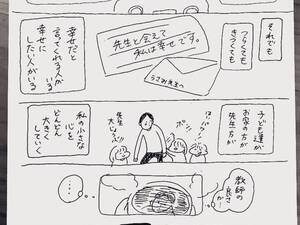 それでも
つらくても
きつくても
先生と会えて
私は幸せです。
うさみ先生へ
幸せだと
言ってくれる人が
いる
幸せに
したい人がいる
子ども達が
お家の方が
先生方が
先生
大じょぶ!!
私の小さな
心を
どんどん
大きく
していく
教師の
良さ
か…
…